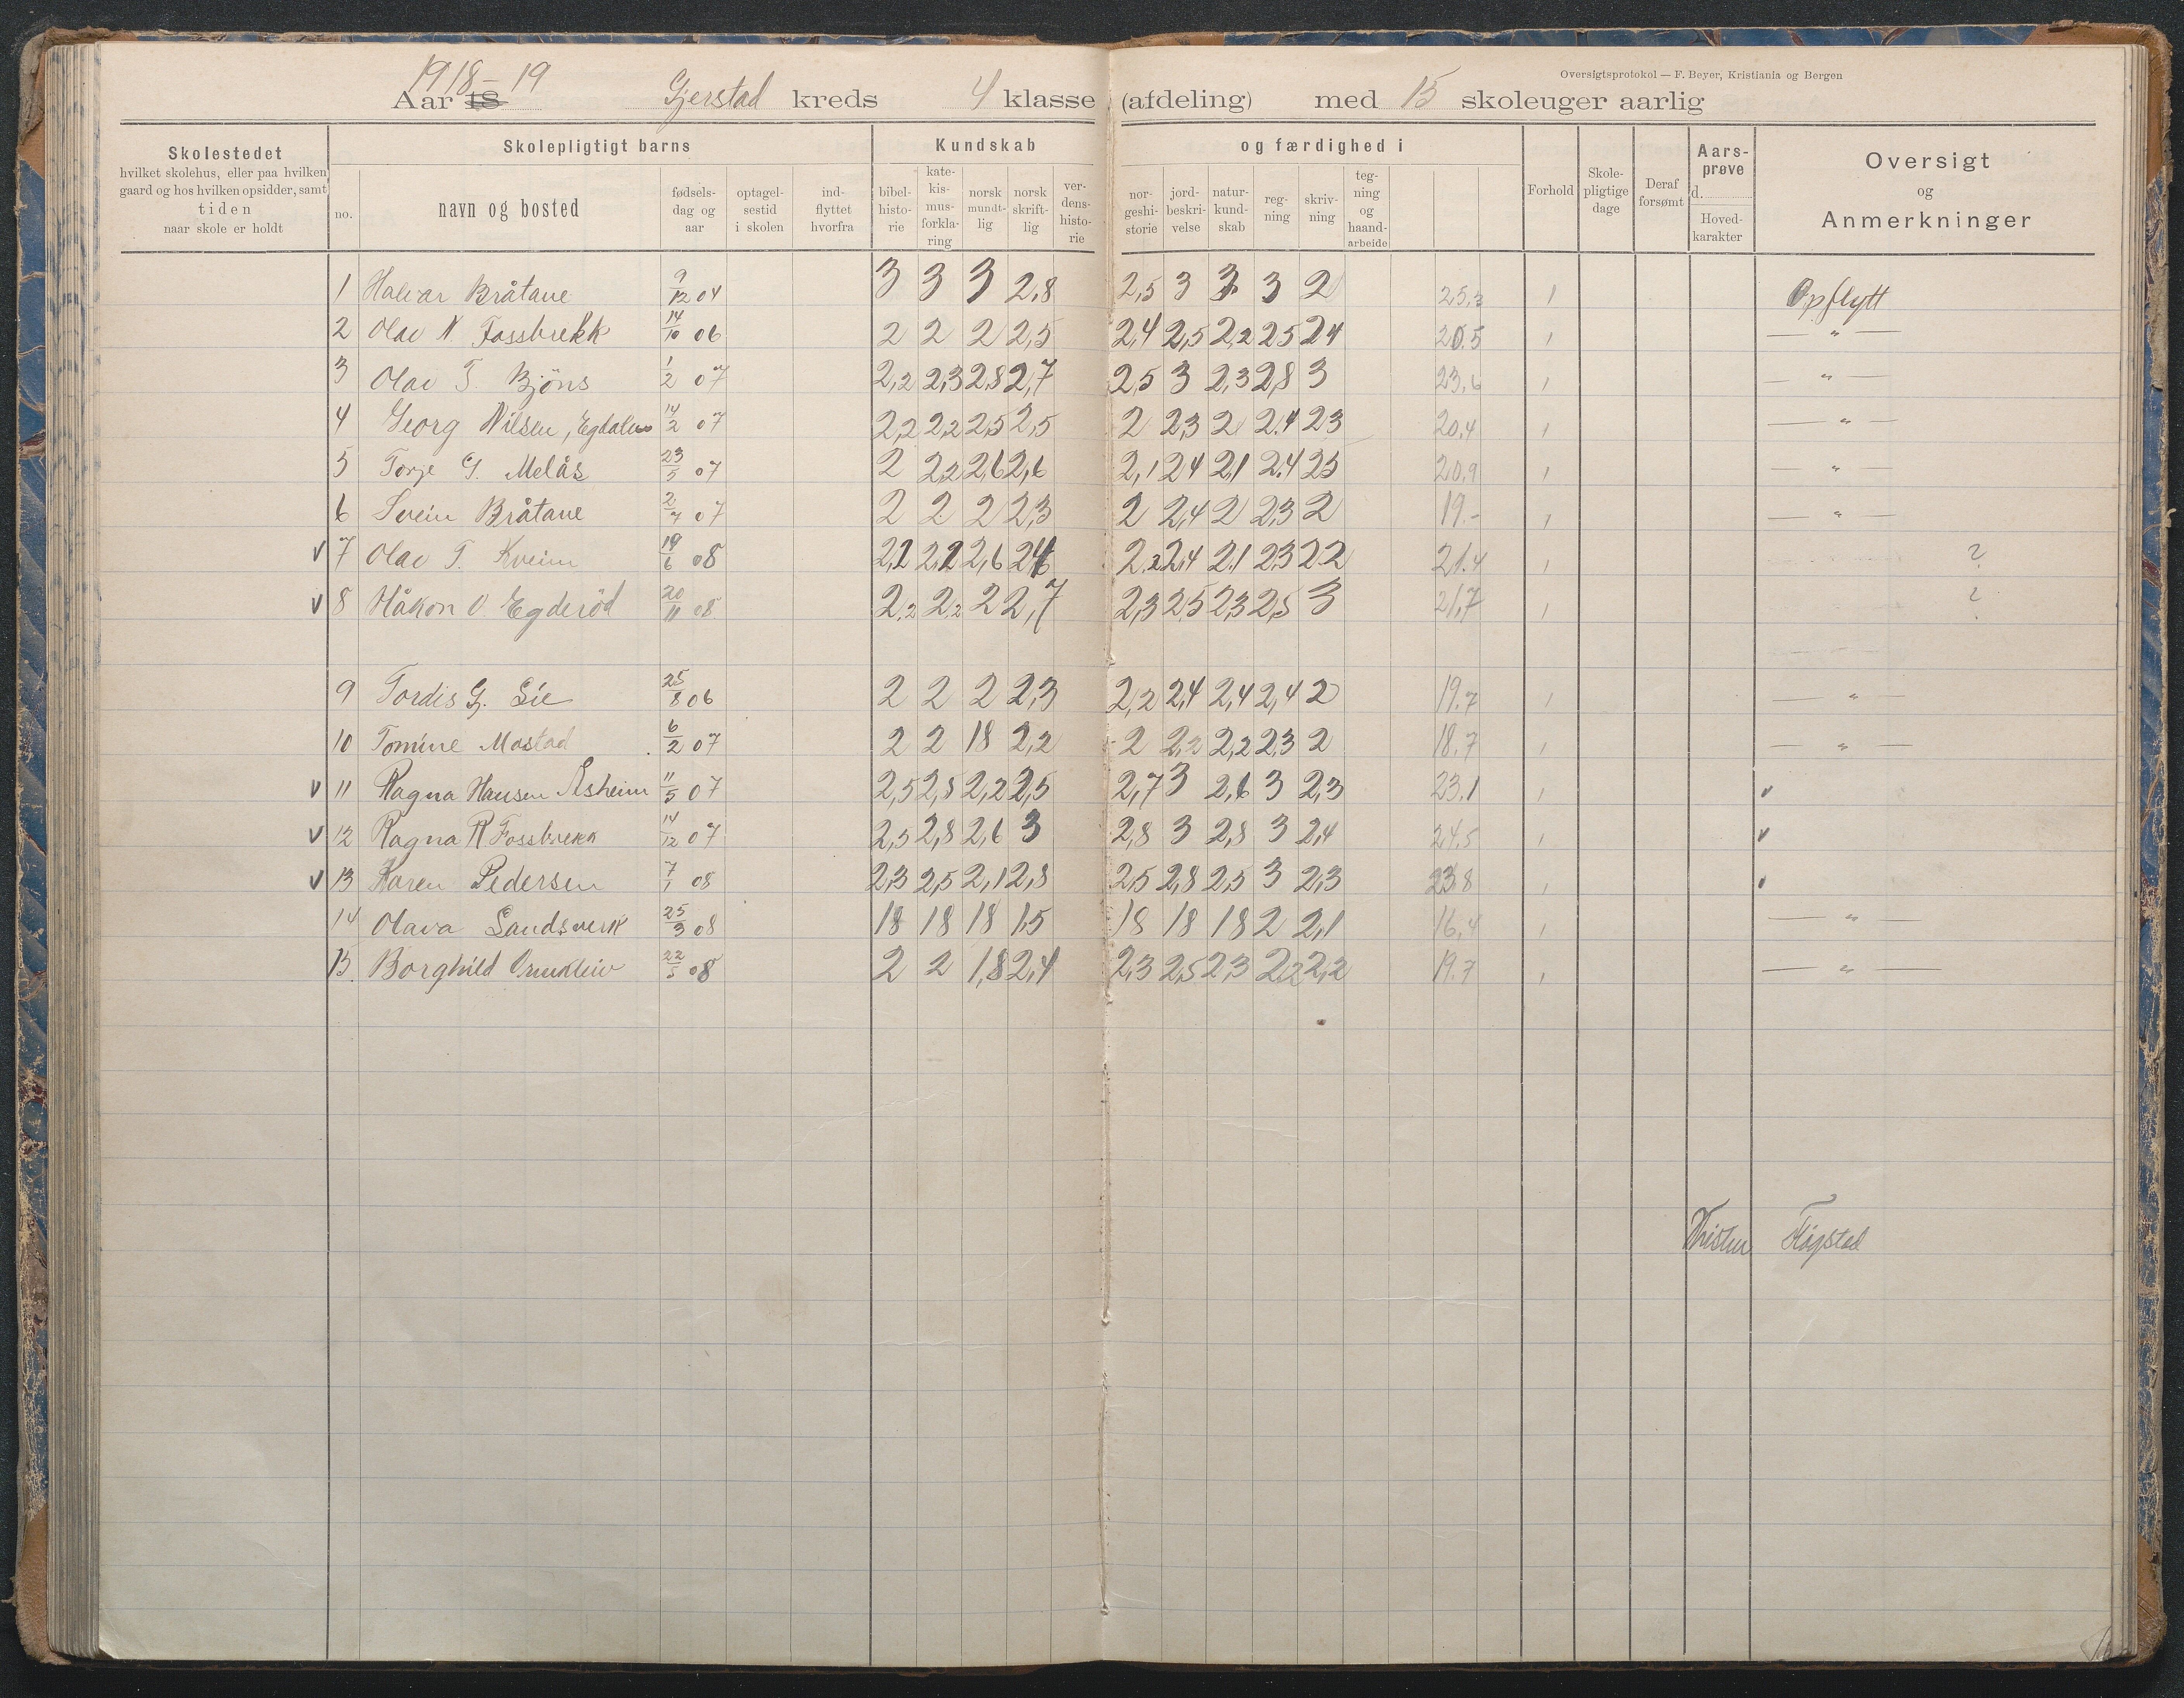 Oversigtsprotokol — F. Beyer, Kristiania og Bergen
Aar 18 1918–19 Gjerstad kreds 4 klasse (afdeling) med 15 skoleuger aarlig
Skolestedet hvilket skolehus, eller paa hvilken gaard og hos hvilken opsidder, samt tiden naar skole er holdt
Skolepligtigt barns
no. navn og bosted fødsels-dag og aar optagel-sestid i skolen ind-flyttet hvorfra
Kundskab og færdighed i
bibel-histo-rie kate-kis-mus-forkla-ring norsk mundt-lig norsk skrift-lig ver-dens-histo-rie nor-geshi-storie jord-beskri-velse natur-kund-skab reg-ning skriv-ning teg-ning og haand-arbeide
Forhold Skole-pligtige dage Deraf forsømt Aars-prøve d. Hoved-karakter
Oversigt og Anmerkninger
1 Halvar Bråtane 9/12 04 3 3 3 2,8 2,5 3 3 3 2 25,3 1 Opflytt
2 Olav N. Fossbrekk 14/10 06 2 2 2 2,5 2,4 2,5 2,2 25 24 20.5 1 — " —
3 Olav T. Bjöns 1/2 07 2,2 2,3 2,8 2,7 2,5 3 2,3 2,8 3 23,6 1 — " —
4 Georg Nilsen, 14/2 07 2,2 2,2 2,5 2,5 2 2,3 2 2.4 23 20,4 1 — " —
5 Torje G. Melås 23/5 07 2 2,2 2,6 2,6 2,1 24 21 2.4 25 20,9 1 — " —
6 Svein Bråtane 2/7 07 2 2 2 2,3 2 2,4 2 2,3 2 19.- 1 — " —
v 7 Olav T. Kveim 19/6 08 2,2 2,6 2.2 2,4 2.1 2.3 2.2 21.4 1 ?
v 8 Håkon O. Egderöd 20/11 08 2,2 2,2 2 2,7 2,3 2,5 2,3 2,5 3 21,7 1 ?
9 Tordis G. Lie 25/8 06 2 2 2 2,3 2,2 2,4 2,4 2,4 2 19.7 1 — " —
10 Tomine Mostad 6/2 07 2 2 18 2,2 2 2,2 2,2 2,3 2 18.7 1 — " —
v 11 Ragna Hansen Åsheim 11/5 07 2,5 2,8 2,2 2,5 2,7 3 2,6 3 2,3 23.1 1 v
v 12 Ragna R Fossbrekk 14/12 07 2,5 2,8 2,6 3 2,8 3 2,8 3 2,4 24,5 1 v
v 13 Karen Pedersen 7/1 08 2,3 2,5 2,1 2,8 2,5 2,8 2,5 3 2,3 23.8 1
14 Olava Sandsverk 25/3 08 18 18 18 1,5 18 18 18 2 2,1 16,4 1 — " —
15. Borghild Ormkleiv 22/5 08 2 2 1,8 2,4 2,3 2,5 2,3 2,2 2,2 19.7 1 — " —